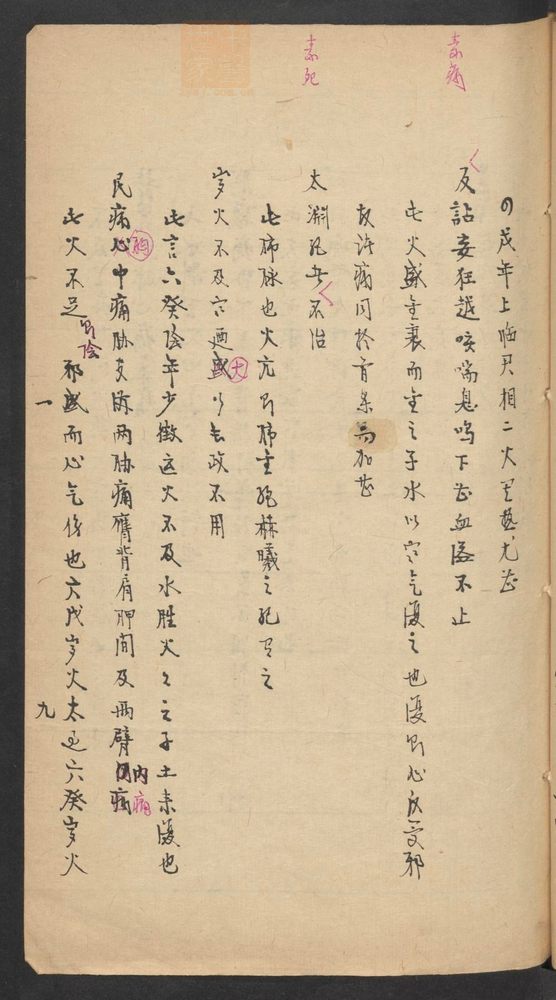 素病
素死
の戌年上临君相二火其热尤甚
反詀妄狂越咳喘息鸣下甚血溢不止
此火盛金衰而金之子水以寒气复之也复则心反受邪
故诸病同於首条而加甚
太渊绝者不治
此肺脉也火亢则肺金绝赫曦之纪有之
岁火不及寒廼大行长政不用
此言六癸陰年少徵运火不及水胜火火之子土来复也
民病胸中痛胁支满两胁痛膺背肩胛间及两臂内痛
此火不足则陰邪盛而心气伤也六戌岁火太过六癸岁火
一九